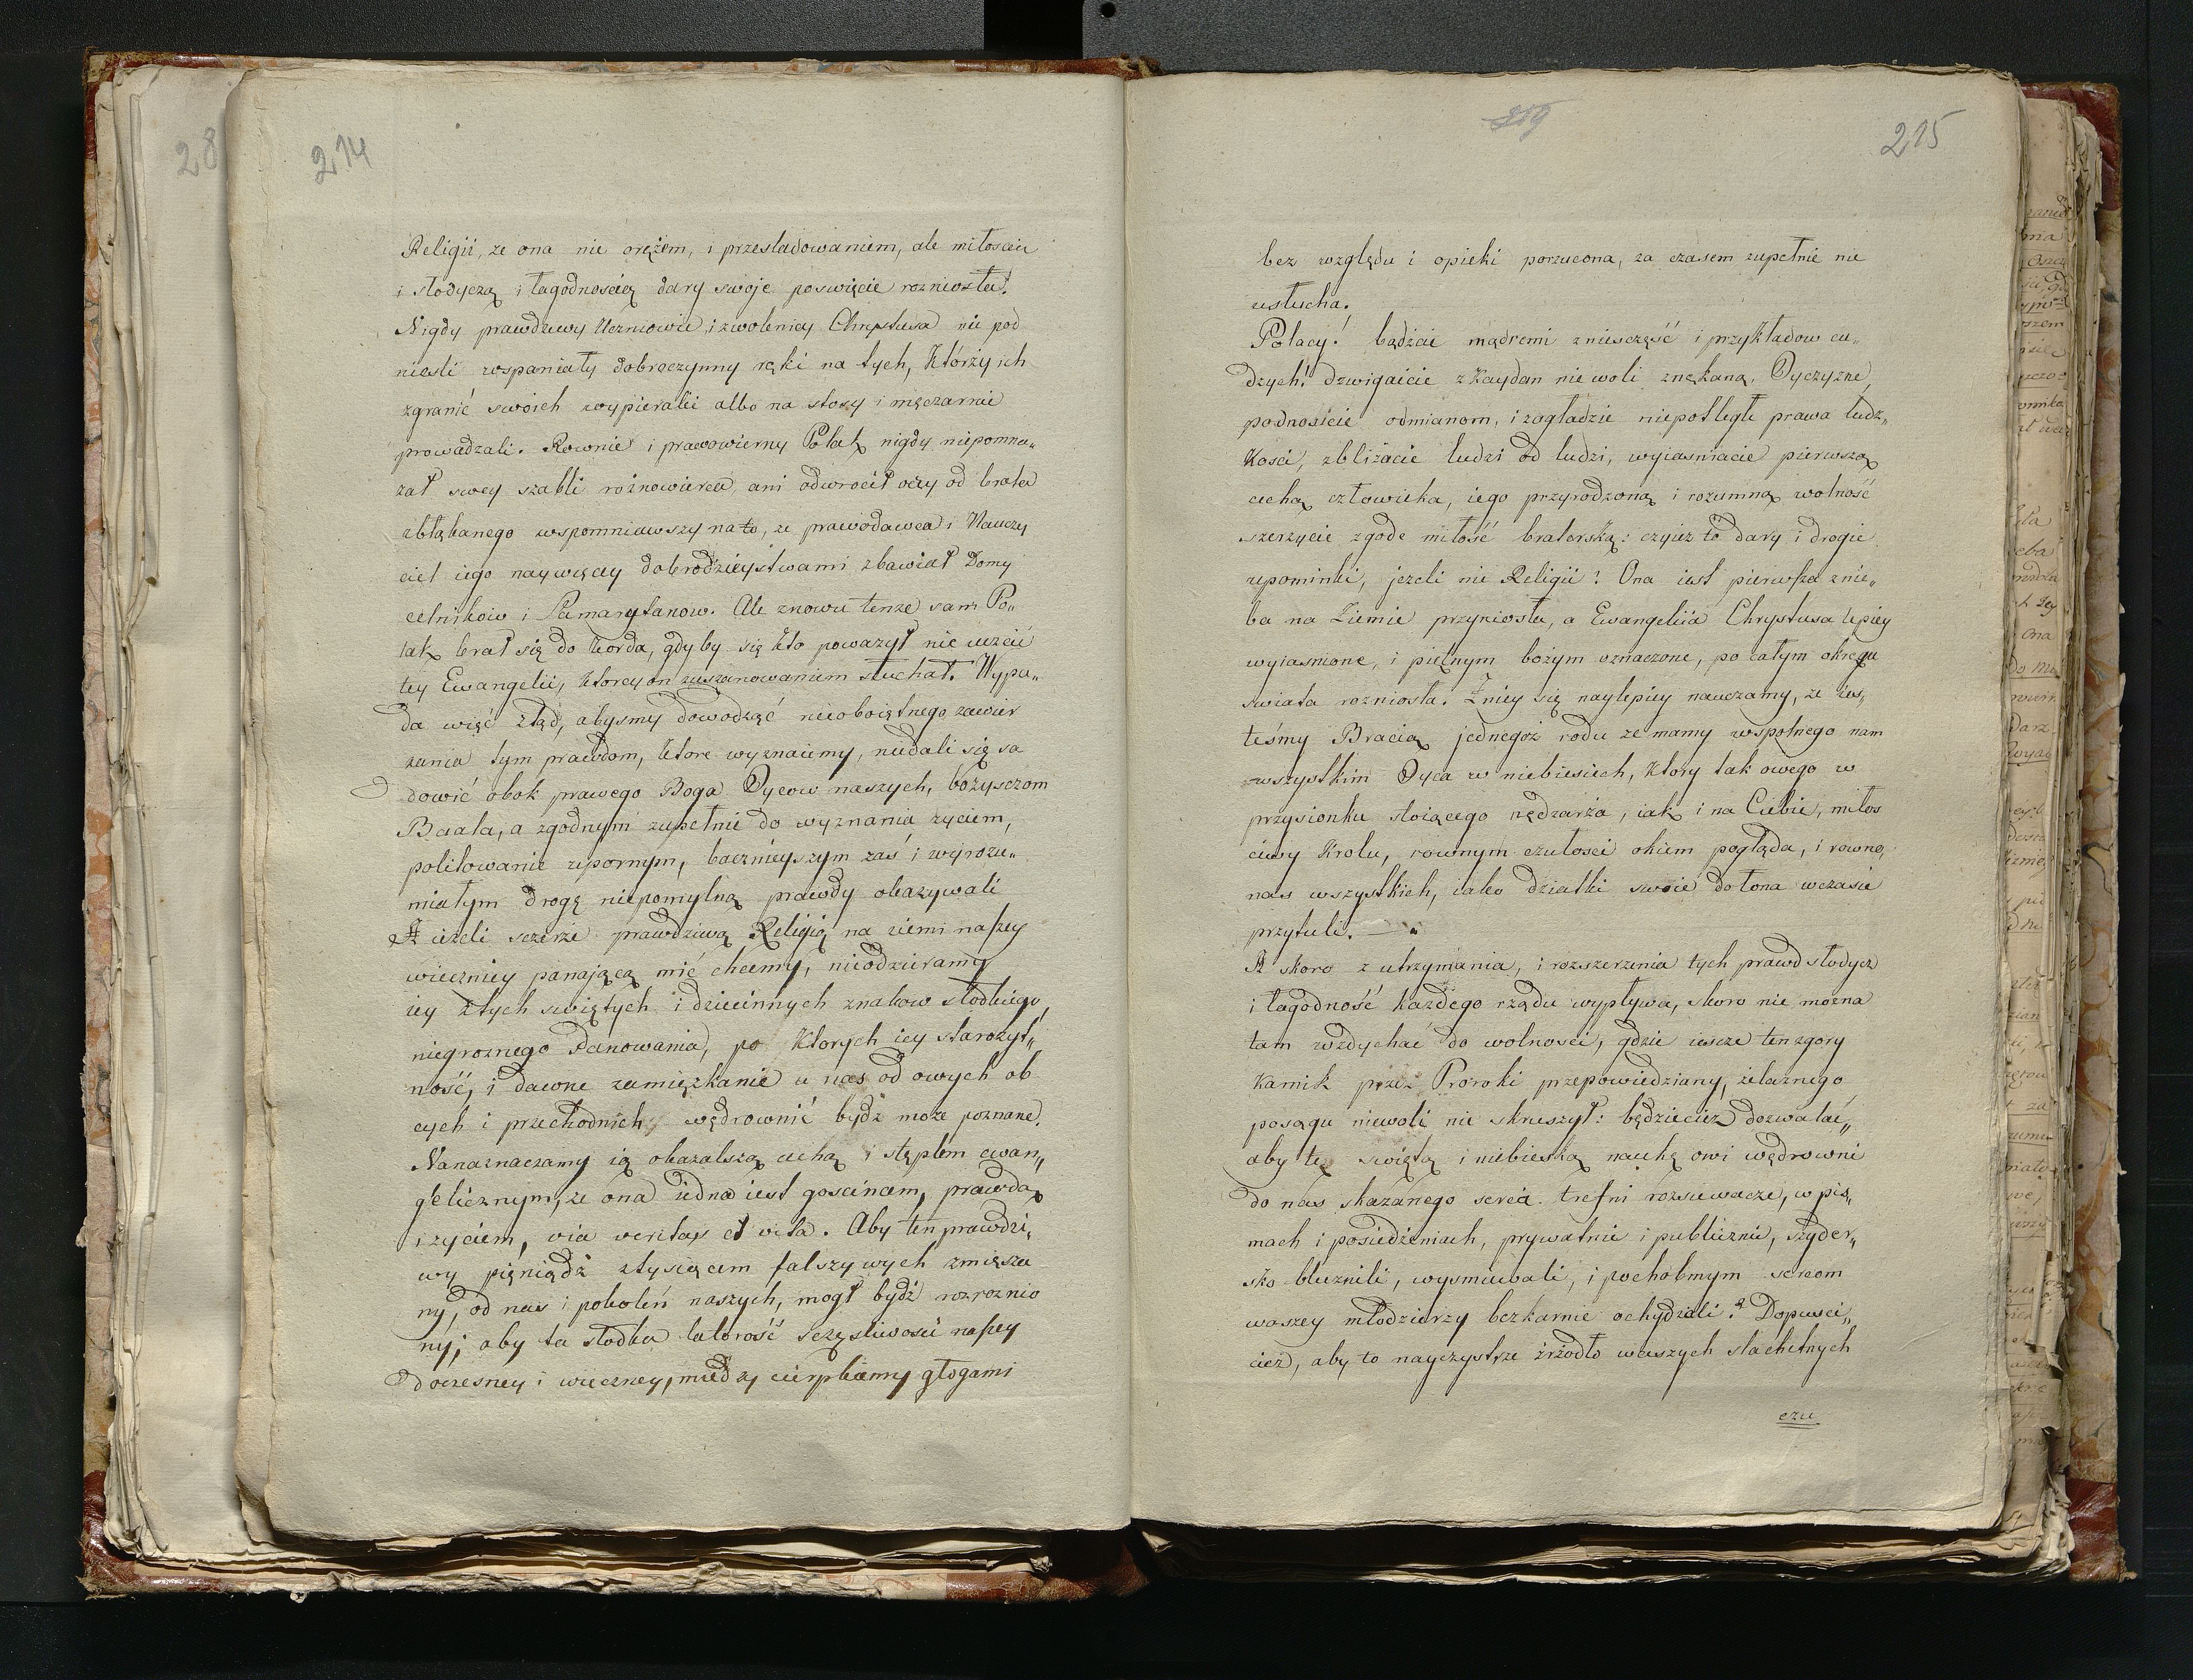 28
214
Religii, ze ona nie orężem, i przesladowaniem, ale miłoscia
i słodyczą i łagodnoscią dary swoje poswięcie rozniosła.
Nigdy prawdziwy Uczniowie, i zwolenicy Chrystusa nie pod
niesli wspaniały dobroczynny ręki na tych, którzy ich
zgranić swoich wypierali albo na stosy i męczarnie
prowadzali. Rownie i prawowierny Polak nigdy niepomna„
zał swey szabli rożnowierca ani odwrocił oczy od brata
zbłąkanego wspomniawszy na to, ze prawodawca i Nauczy
ciel iego naywięcey dobrodzieystwami zbawiał Domy
celnikow i Samarytanow. Ale znowu tenze sam Po„
lak brał się do korda, gdy by się kto powazył nie uczcić
tey Ewangelii, ktorey on zuszanowaniem słuchał. Wypa„
da więć ztąd, abysmy dowodząć nieoboiętnego zawier
zania tym prawdom, ktore wyznaiemy, niedali się sa
dowić obok prawego Boga Oycow naszych, bożysczom
Baala, a zgodnym zupełnie do wyznania zyciem,
politowanie upornym, bacznieyszym zaś i wyrozu„
miałym drogę niepomylną prawdy okazywali
A ieżeli sczerze prawdziwą Religią na ziemi naszey
wieczniey panającą mić chcemy, nieodzieramy
iey ztych swiętych i dziecinnych znakow słodkiego,
niegroznego Panowania, po ktorych iey starożyt„
ność, i dawne zamięszkanie u nas od owych ob
cych i przechodnich wędrownić bydź może poznane.
Nanaznaczamy ią okazalszą cechą i stęplem ewan„
gelicznym, ze ona iedna iest goscincem, prawdą
i zyciem, via veritas et vita. Aby ten prawdzi„
wy pięniądz ztysiącem falszywych zmięsza
ny, od nas i pokoleń naszych, mogł bydź rozroznio
ny; aby ta słodka latorość sczęsliwosci naszey
doczesney i wieczney, miedzy cierpkiemy głogami
259
215
bez względu i opieki porzucona, za czasem zupełnie nie
usłucha.
Polacy! bądźcie mądremi znieszczęść i przykładow cu„
dzych! dzwigaicie z kaydan niewoli znękaną Oyczyznę,
podnosicie odmianom, i zagładzie niepodległe prawa ludz„
kosci, zbliżacie ludzi od ludzi, wyiasniacie pierwszą
cechą człowieka, iego przyrodzoną i rozumną wolność
szerzycie zgode miłość braterską: czyież to dary i drogie
upominki, jezeli nie Religii? Ona iest pierwsza znie„
ba na Ziemie przyniosła, a Ewangeliia Chrystusa lepiey
wyiasnione, i piętnym bożym oznaczone, po całym okręgu
swiata rozniosła. Zniey się naylepiey nauczamy, ze ies„
teśmy Bracią jednegoż rodu ze mamy wspolnego nam
wszystkim Oyca w niebiesiech, ktory tak owego w
przysionku stoiącego nędzarża, iak i na Ciebie, miłos
ciwy Krolu, rownym czułosci okiem pogląda, i rowno,
nas wszystkich, iako dziatki swoie do łona wczasie
przytuli.
A skoro z utrzymania, i rozszerzenia tych prawd słodycz
i łagodność kazdego rządu wypływa, skoro nie mozna
tam wzdychać do wolnosci, gdzie iescze ten zgory
kamik przez Proroki przepowiedziany, żelaznego
posągu niewoli nie skruszył: będziecież dozwalać„
aby tę swiętą i niebieską naukę owi wędrowni
do nas skazanego serca trefni rozsiewacze, w pis„
mach i posiedzeniach, prywatnie i publicznie, szyder„
sko bluznili, wysmiewali, i pochobmym sercom
waszey młodzierzy bezkarnie ochydzali? Dopusci„
cież, aby to nayczystsze źrżodło waszych slachetnych
czu